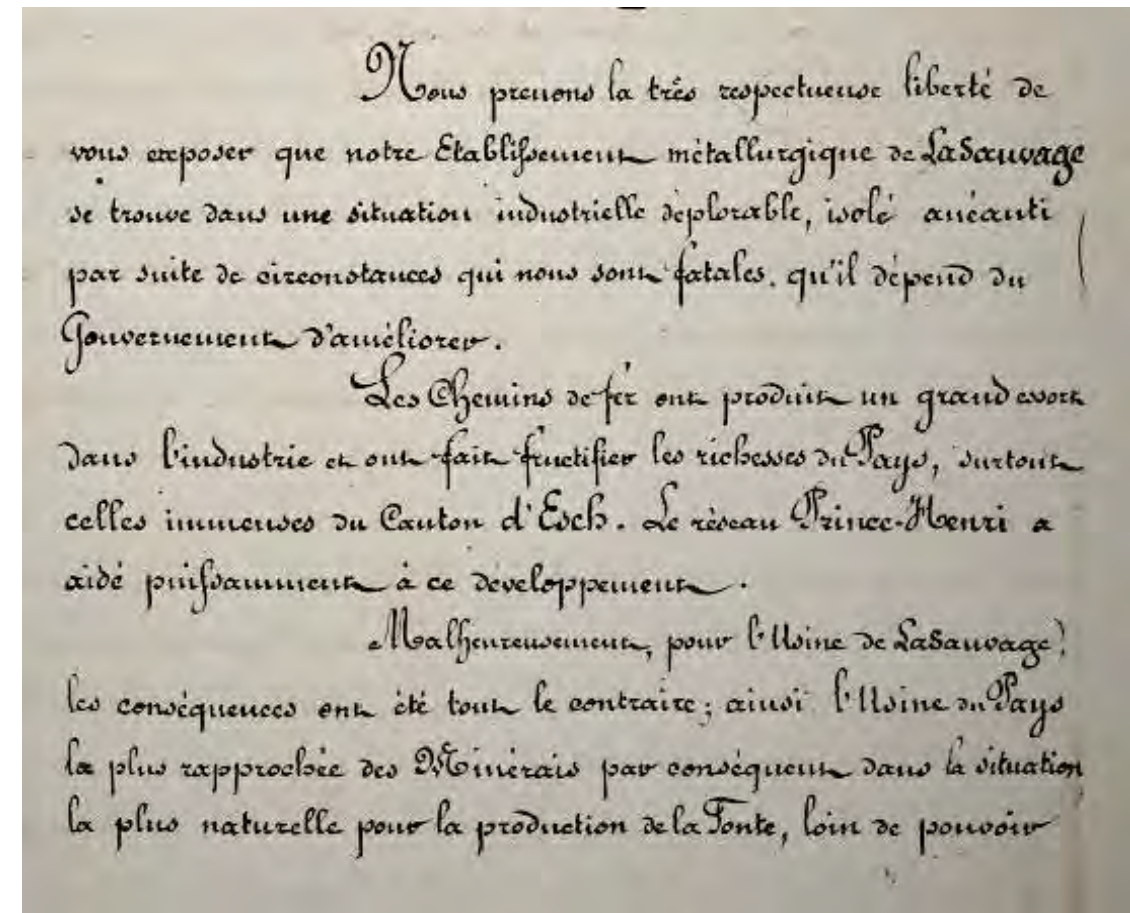 Nous prenons la très respectueuse liberté de
vous exposer que notre Etablissement métallurgique de LaSauvage
se trouve dans une situation industrielle déplorable, isolé anéanti
par suite de circonstances qui nous sont fatales. qu'il dépend du
Gouvernement d'améliorer.
Les Chemins de fer ont produit un grand essort
dans l'industrie et ont fait fructifier les richesses du Pays, surtout
celles immenses du Canton d'Esch. Le réseau Prince-Henri a
aidé puissamment à ce développement.
Malheureusement, pour l'Usine de LaSauvage,
les conséquences ont été tout le contraire; ainsi l'Usine du Pays
la plus rapprochée des Minérais par conséquent dans la situation
la plus naturelle pour la production de la Fonte, loin de pouvoir